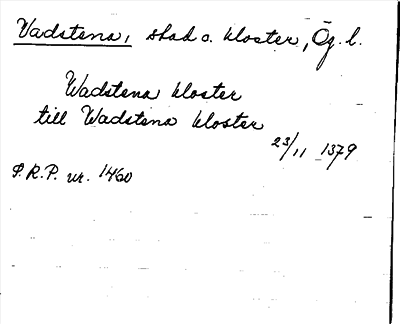 Vadstena, stad o. kloster, Ög. l.
Wadstena kloster
till Wadstena kloster
23/11 1379
S.R.P. nr. 1460